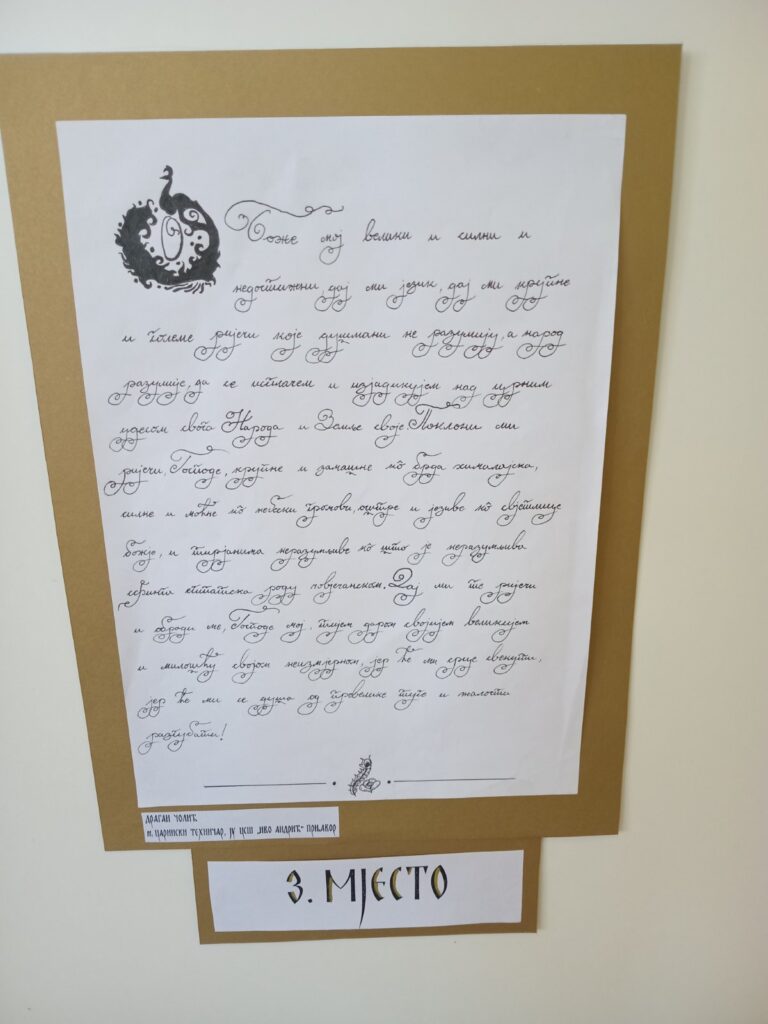 О Боже мој велики и силни и
недостижни, дај ми језик, дај ми крупне
и големе ријечи које душмани не разумију, а народ
разумије, да се исплачем и изјадикујем над црним
удесом свога Народа и Земље своје. Поклони ми
ријечи, Господе, крупне и замашне кô брда хималајска,
силне и моћне кô небески громови, оштре и језиве кô свјетлице
божје, и тирјанима неразумљиве кô што је неразумљива
сфинга роду човјечанском. Дај ми те ријечи
и обрадуј ме, Господе мој, тијем даром својијем великијем
и милошћу својом неизмјерном, јер ће ми срце свенути,
јер ће ми се душа од превелике туге и жалости
разгубати!
Драган Чолић
Царински техничар, ЈУ ЦСШ "Иво Андрић" Прњавор
3. МЈЕСТО